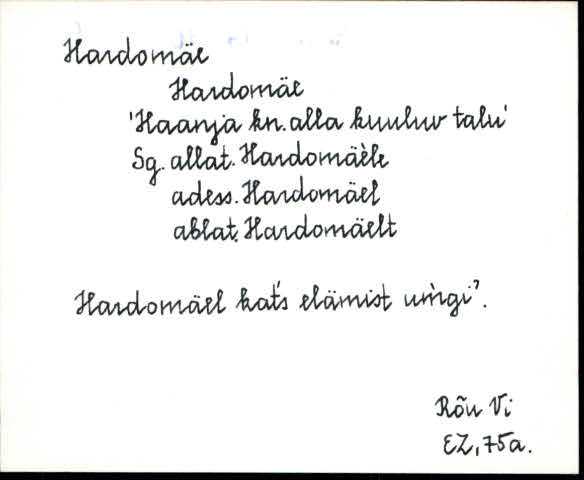 Hardomäe
Hardomäe
'Haanja kn. alla kuuluv talu'
Sg. allat. Hardomäèle
adess. Hardomäel
ablat. Hardomäelt
Hardomäel kat́s elämist um̀giˀ.
Rõu Vi
EZ, 75a.